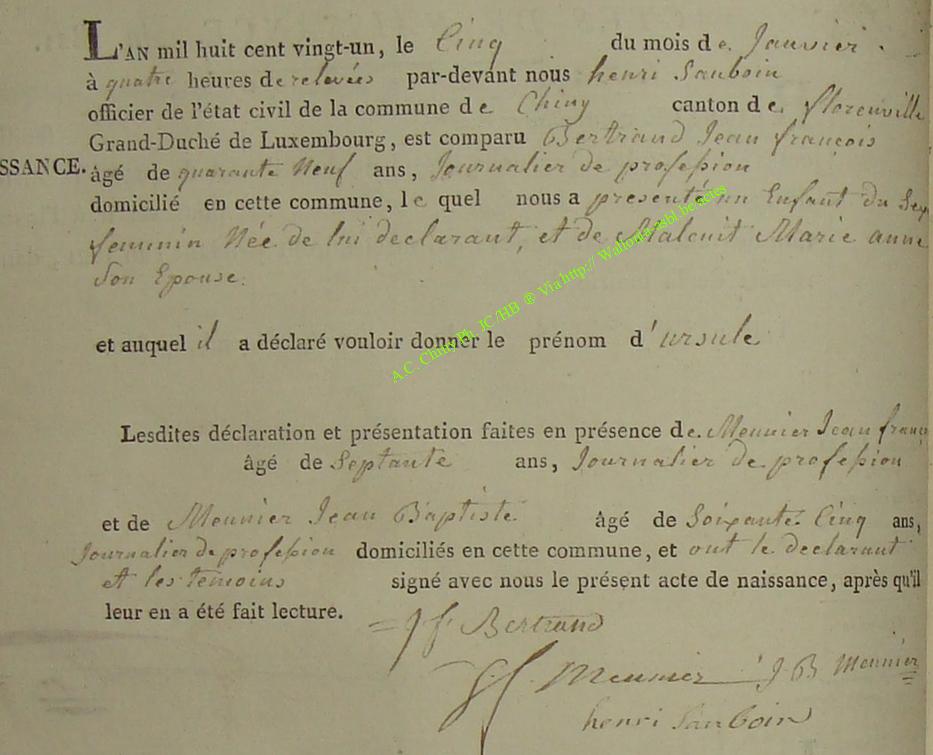 L'AN mil huit cent vingt-un, le Cinq du mois de Janvier.
à quatre heures de relevées par-devant nous henri Sauboin
officier de l'état civil de la commune de Chiny canton de florenville
Grand-Duché de Luxembourg, est comparu Bertrand Jean francois
SSANCE. âgé de quarante Neuf ans, Journalier de profession
domicilié en cette commune, le quel nous a presenté un Enfant du Sexe
feminin Née de lui declarant, et de Maleuit Marie anne
Son Epouse.
et auquel il a déclaré vouloir donner le prénom d'ursule
A.C. Chiny Ph. JC/HB ® Via http://Wallonia-asbl.be actes
Lesdites déclaration et présentation faites en présence de Meunier Jean franç
âgé de Septante ans, Journalier de profession
et de Meunier Jean Baptiste âgé de Soixante Cinq ans,
Journalier de profession domiciliés en cette commune, et ont le declarant
et les temoins signé avec nous le présent acte de naissance, après qu'il
leur en a été fait lecture.
J f Bertrand
Meunier J B Meunier
henri Sauboin